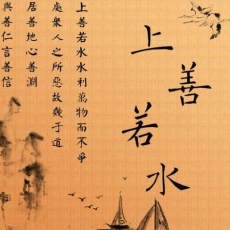 上善若水
上善若水水利萬物而不爭
處衆人之所惡故幾于道
居善地心善淵
與善仁言善信